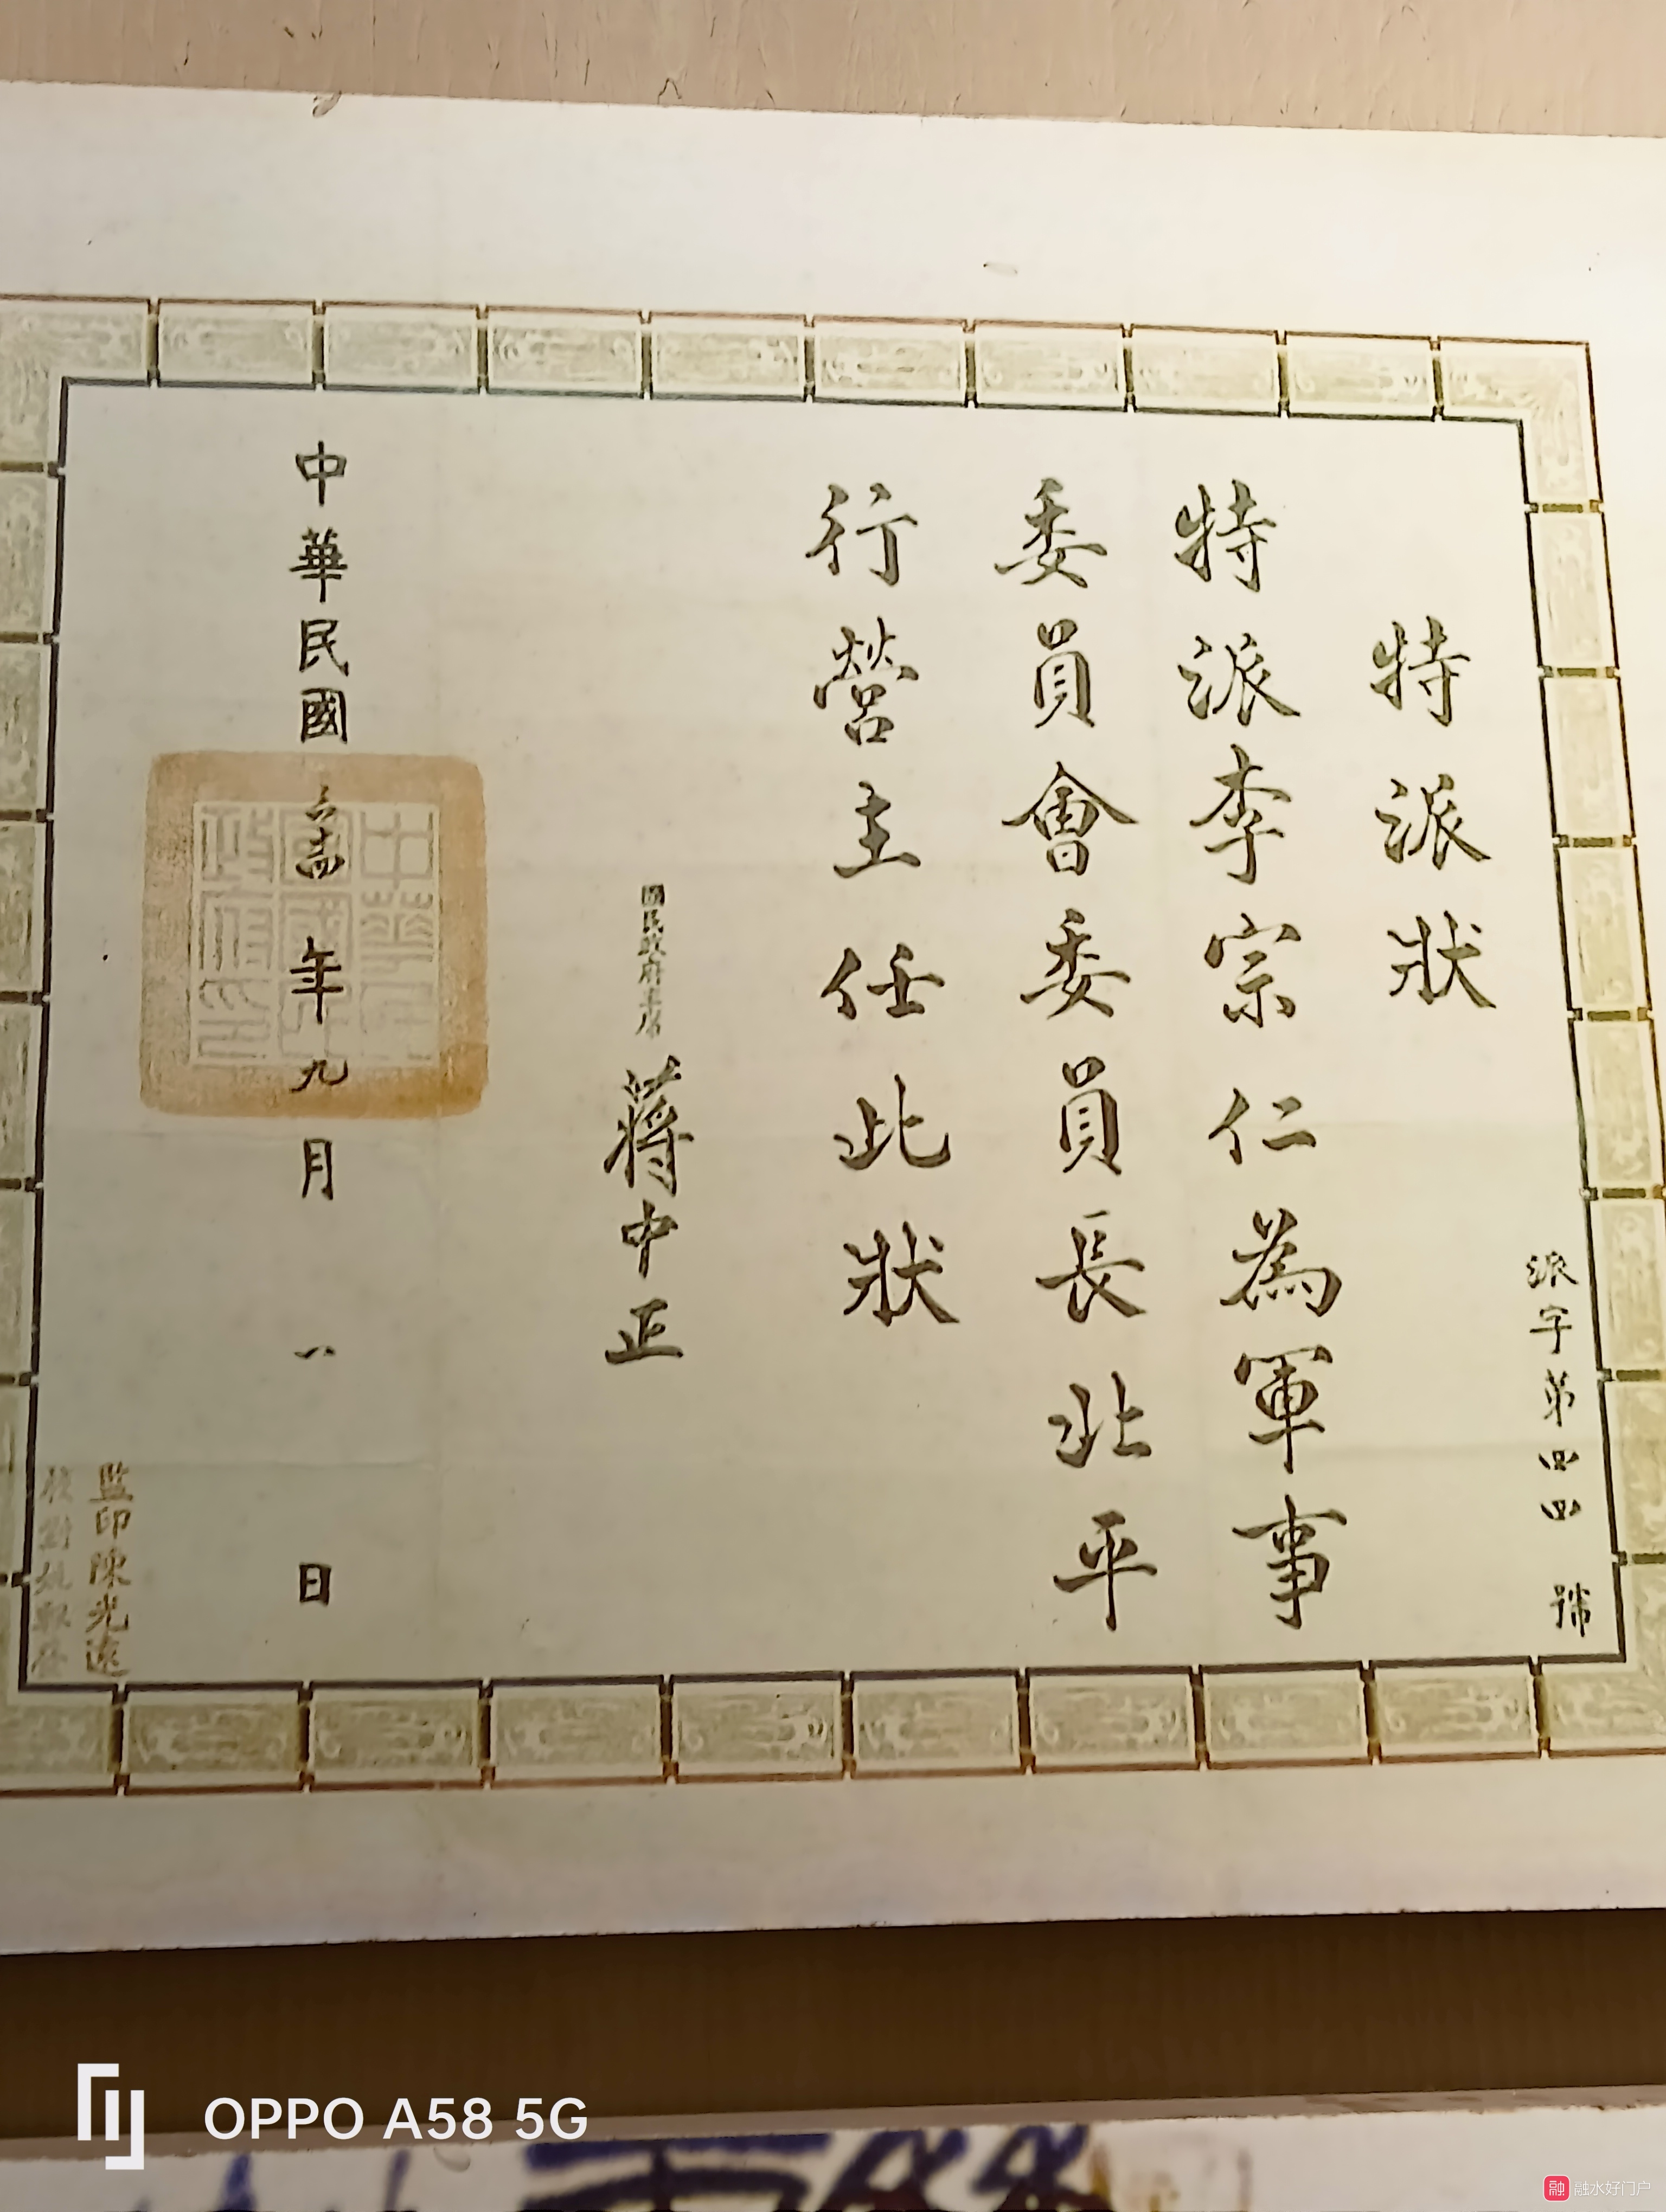 派字第四四號
特派狀
特派李宗仁為軍事
委員會委員長北平
行營主任此狀
國民政府主席 蔣中正
中華民國三十四年九月一日
監印陳光遠
OPPO A58 5G
融水好门户